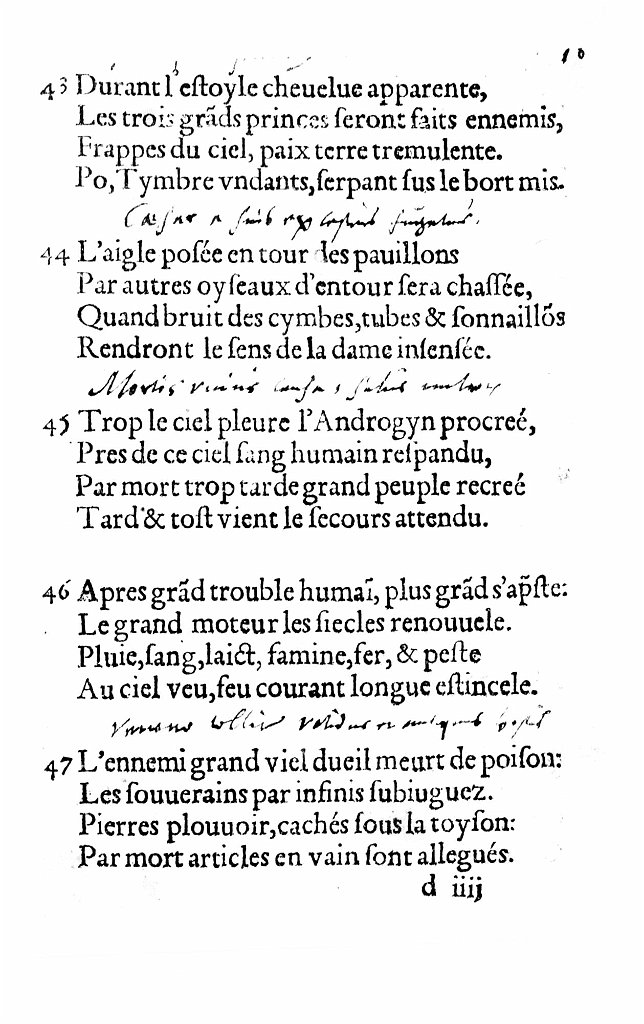 43 Durant l'eſtoyle cheuelue apparente,
Les trois grãds princes ſeront faits ennemis,
Frappes du ciel, paix terre tremulente.
Po, Tymbre vndants, ſerpant ſus le bort mis.
44 L'aigle poſée en tour des pauillons
Par autres oyſeaux d'entour ſera chaſſée,
Quand bruit des cymbes, tubes & ſonnaillõs
Rendront le ſens de la dame inſenſée.
45 Trop le ciel pleure l'Androgyn procreé,
Pres de ce ciel ſang humain reſpandu,
Par mort trop tarde grand peuple recreé
Tard & toſt vient le ſecours attendu.
46 Apres grãd trouble humaĩ, plus grãd s'ap̃ſte:
Le grand moteur les ſiecles renouuele.
Pluie, ſang, laict, famine, fer, & peſte
Au ciel veu, feu courant longue eſtincele.
47 L'ennemi grand viel dueil meurt de poiſon:
Les ſouuerains par infinis ſubiuguez.
Pierres plouuoir, cachés ſous la toyſon:
Par mort articles en vain ſont allegués.
d iiij